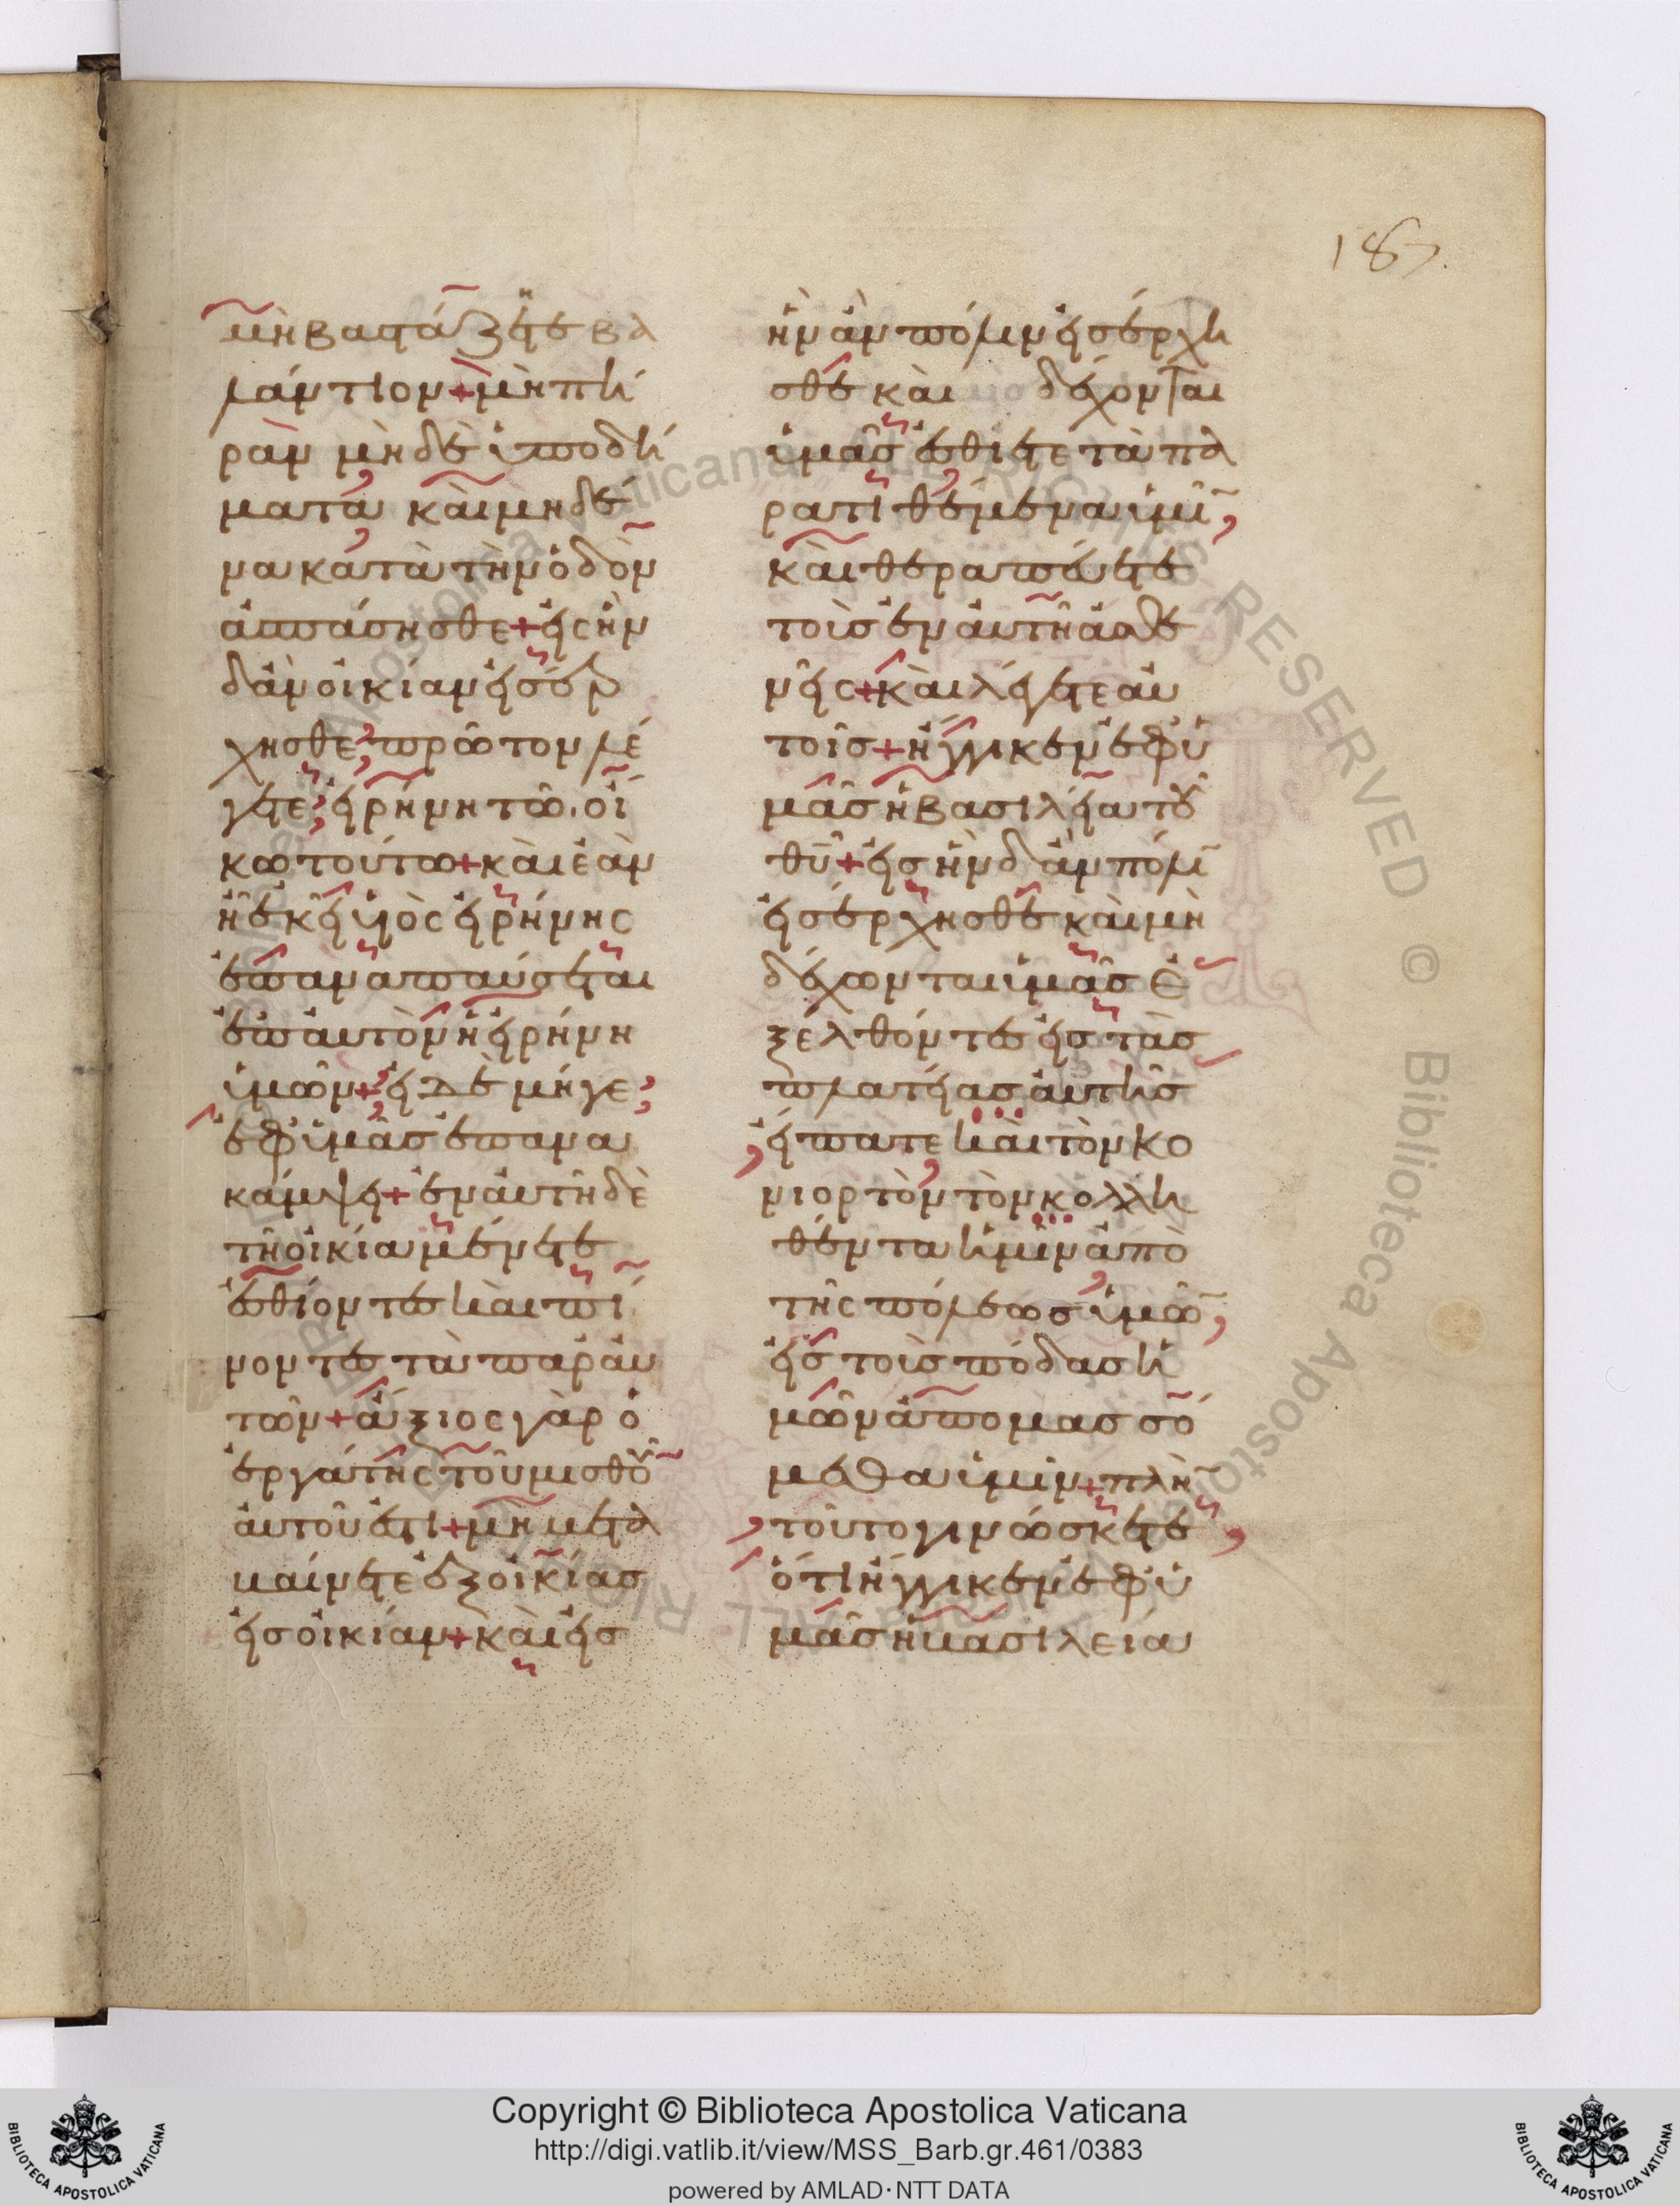 187.
μὴ βαστάζετε βα
λάντιον + μὴ πή
ραν μὴ δὲ ὑποδή
ματα καὶ μηδέ
να κατὰ τὴν ὁδὸν
ἀσπάσησθε + εἰς ἣν
δ' ἂν οἰκίαν εἰσέρ
χησθε, πρῶτον λέ
γετε, εἰρήνη τῶ οἴ
κω τούτω + καὶ ἐὰν
ἦ ἐκεῖ υἱὸς εἰρήνης
ἐπαναπαύσεται
ἐπ' αὐτὸν ἡ εἰρήνη
ὑμῶν + εἰ δὲ μήγε,
ἐφ' ὑμᾶς ἐπανα
κάμψει + ἐν αὐτῆ δὲ
τῆ οἰκία μένετε
ἐσθίοντες καὶ πί
νοντες τὰ παρ' αὐ
τῶν + ἄξιος γὰρ ὁ
ἐργάτης τοῦ μισθοῦ
αὐτοῦ ἐστι + μὴ μετα
βαίνετε ἐξ οἰκίας
εἰς οἰκίαν + καὶ εἰς
ἣν ἂν πόλιν εἰσέρχη
σθε καὶ δέχονται
ὑμᾶς ἐσθίετε τὰ πα
ρατιθέμενα ὑμῖ̃,
καὶ θεραπεύετε
τοὺς ἐν αὐτῆ ἀσθε
νεῖς + καὶ λέγετε αὐ
τοῖς + ἤγγικεν ἐφ' ὑ
μᾶς ἡ βασιλεία τοῦ
θυ̅ + εἰς ἣν δ' ἂν πόλι̃
εἰσέρχησθε καὶ μὴ
δέχωνται ὑμᾶς ἐ
ξελθόντες εἰς τὰς
πλατείας αὐτῆς
εἴπατε καὶ τὸν κο
νιορτὸν τὸν κολλη
θέντα ἡμῖν ἀπὸ
τῆς πόλεως ὑμῶ̃,
εἰς τοὺς πόδας ἡ
μῶν ἀπομασσό
μεθα ὑμῖν + πλὴ̃
τοῦτο γινώσκετε,
ὅτι ἤγγικεν ἐφ' ὑ
μᾶς ἡ βασιλεία
Copyright © Biblioteca Apostolica Vaticana
http://digi.vatlib.it/view/MSS_Barb.gr.461/0383
powered by AMLAD·NTT DATA